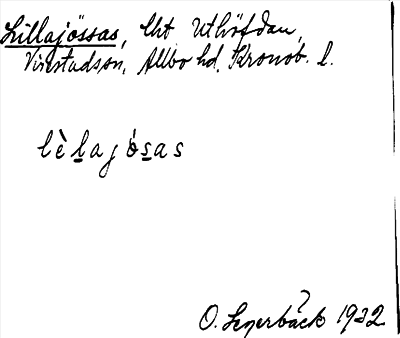 Lillajössas, lht Utlöfdan,
Virestadssn, Allbo hd, Kronob. l.
lèlajósas
O. 1932